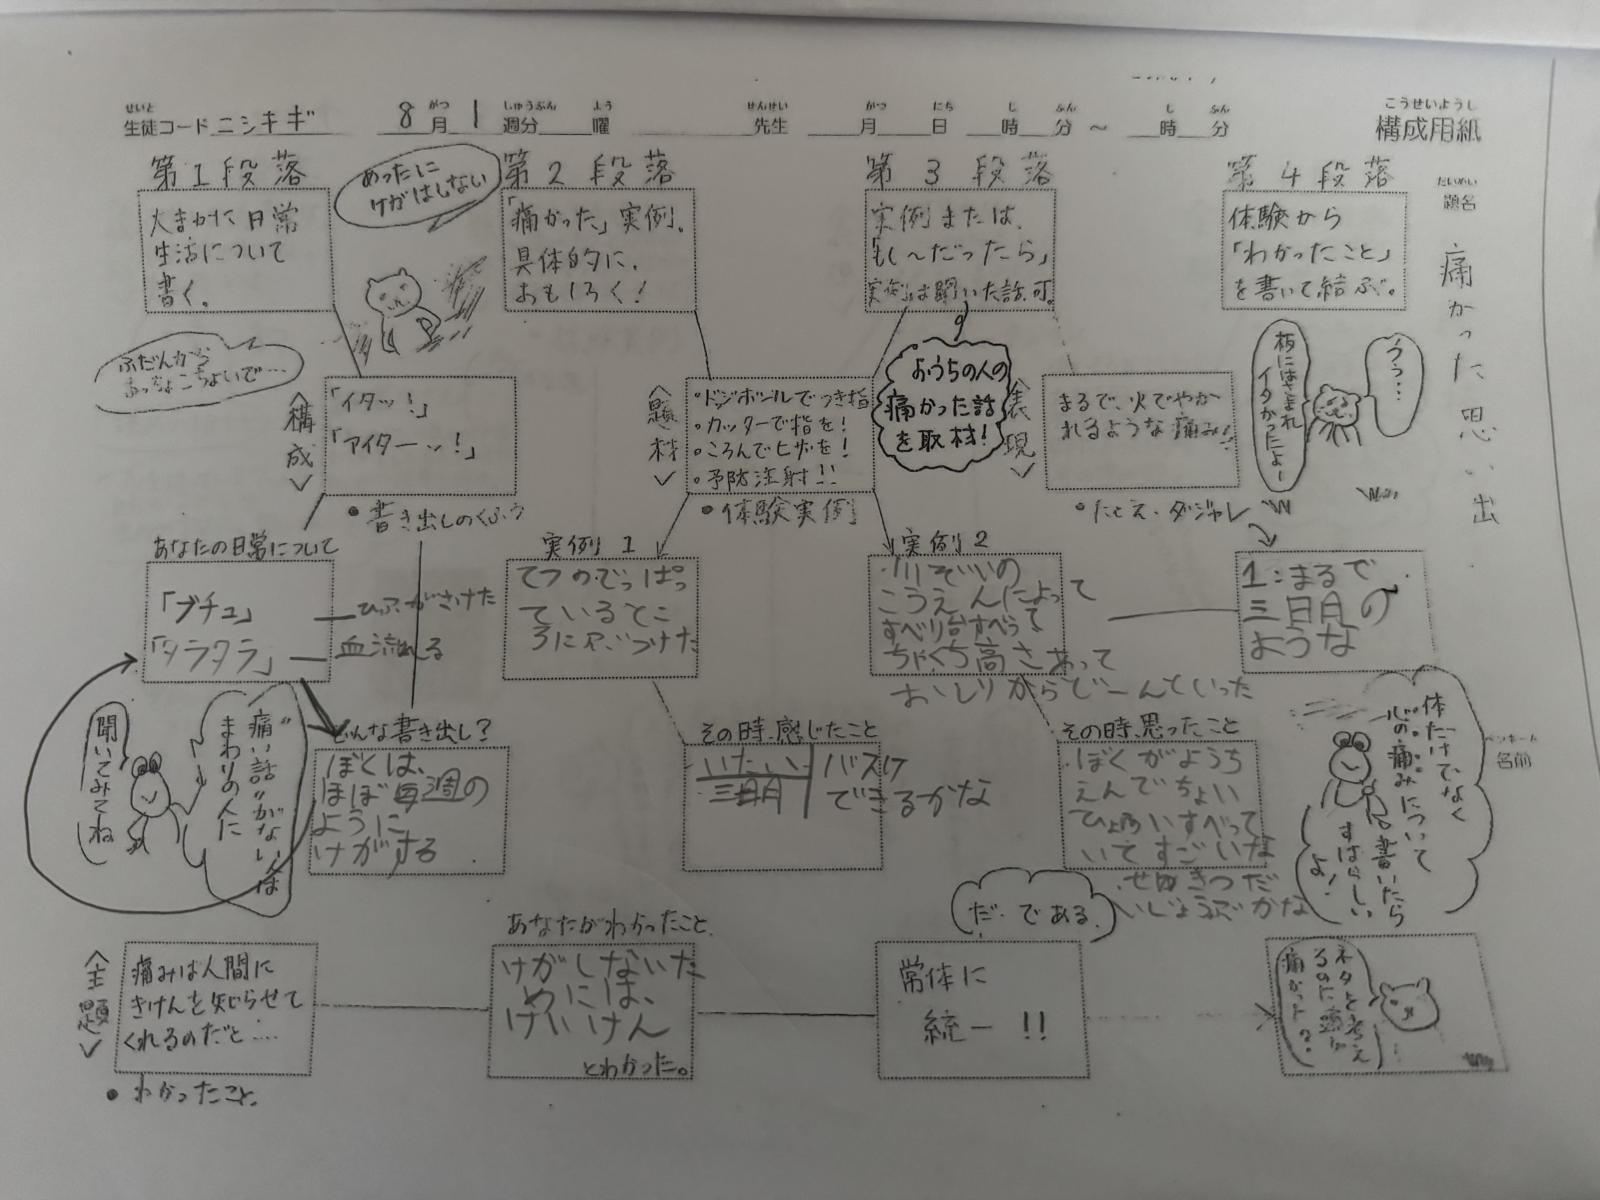 せいと がつ しゅうぶん よう せんせい がつ にち じ ふん じ ふん こうせいようし
生徒コード ニシキギ 8月 1週分 曜 先生 月 日 時 分 ~ 時 分 構成用紙
だいめい
題名
痛かった思い出
名前
第1段落
大まかに日常
生活について
書く。
めったに
ケガはしない
第2段落
「痛かった」実例。
具体的に。
おもしろく!
第3段落
実例または、
「もし~だったら」
実例は聞いた話可。
第4段落
体験から
「わかったこと」
を書いて結ぶ。
ふだんから
おっちょこちょいで…
〈構成〉
「イタッ!」
「アイターッ!」
•書き出しのくふう
〈題材〉
•ドジボールでつき指
•カッターで指を!
•ころんでヒザを!
•予防注射!!
•体験実例
おうちの人の
痛かった話
を取材!
〈表現〉
まるで、火でやか
れるような痛み!!
•たとえ・ダジャレ
板にはさまれ
イタかったよー
うぅ…
あなたの日常について
「ブチュ」
「タラタラ」
ひふがさけた
血流れる
実例1
てつのでっぱっ
ているとこ
ろに
ぶつけた
実例2
川ぞいの
こうえんによって
すべり台すべって
高さあって
おしりからどーんといった
1:まるで
三日月の
ような
“痛い話”がない人は
まわりの人に
聞いてみてね
どんな書き出し?
ぼくは、
ほぼ毎週の
ように
けがする
その時、感じたこと
いたい
三日月
バスケ
できるかな
その時、思ったこと
ぼくがようち
えんでちょい
ひょいすべって
いてすごいな
せぼきつだ
いじょうぶかな
体だけでなく
心の痛みについて
書いたら
すばらしい
よ!
〈主題〉
痛みは人間に
きけんを知らせて
くれるのだと…
•わかったこと
あなたがわかったこと
けがしないた
めには、
けいけん
とわかった。
だ・である
常体に
統一!!
ネタを考え
るのに頭が
痛かった?